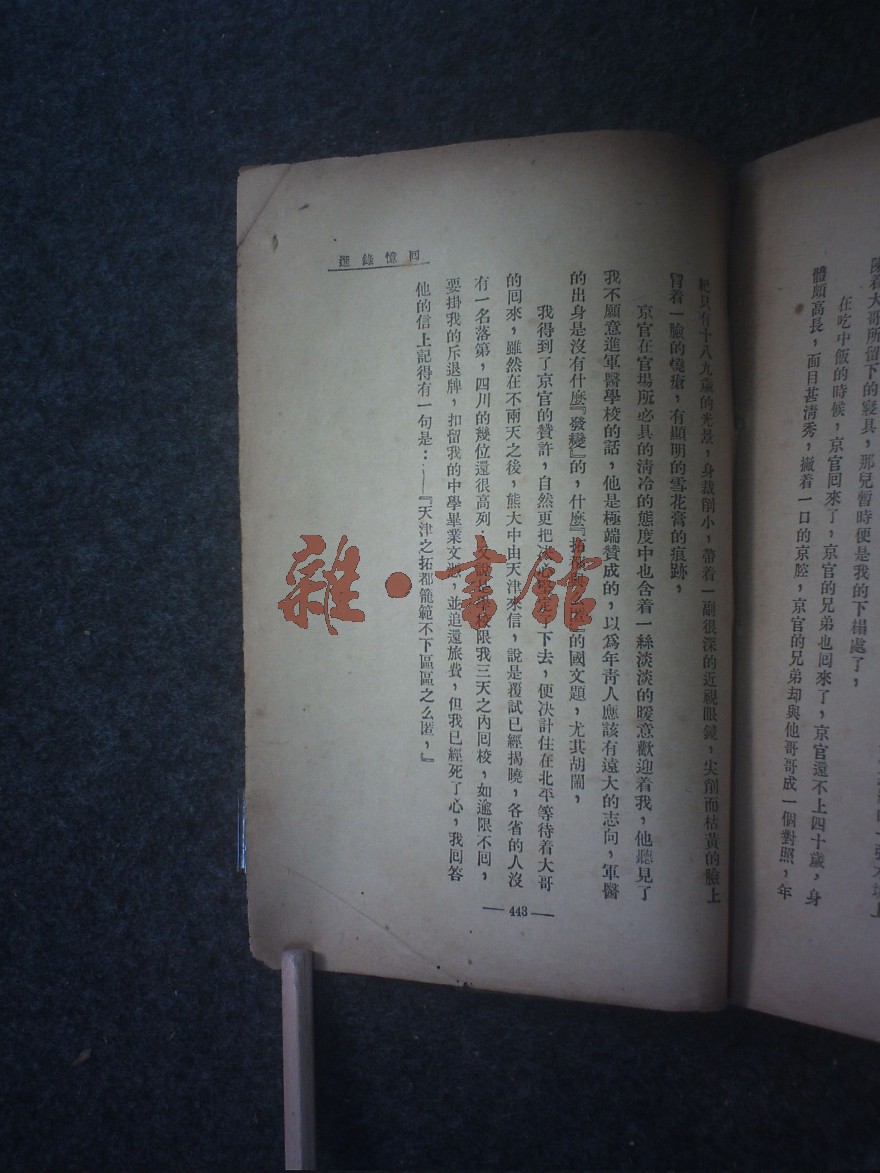 陳着大哥所留下的寢具，那兒暫時便是我的下榻處了，
在吃中飯的時候，京官回來了，京官的兄弟也回來了，京官還不上四十歲，身
體頗高長，面目甚淸秀，撇着一口的京腔，京官的兄弟却與他哥哥成一個對照，年
紀只有十八九歲的光景，身裁削小，帶着一副很深的近視眼鏡，尖削而枯黃的臉上
冒着一臉的燒瘡，有顯明的雪花膏的痕跡，
京官在官場所必具的淸冷的態度中也含着一絲淡淡的暖意歡迎着我，他聽見了
我不願意進軍醫學校的話，他是極端贊成的，以爲年靑人應該有遠大的志向，軍醫
的出身是沒有什麼『發變』的，什麼『拓都與么匿』的國文題，尤其胡鬧，
我得到了京官的贊許，自然更把决心堅定了下去，便决計住在北平等待着大哥
的回來，雖然在不兩天之後，熊大中由天津來信，說是覆試已經揭曉，各省的人沒
有一名落第，四川的幾位還很高列，又說是學校限我三天之內回校，如逾限不回，
要掛我的斥退牌，扣留我的中學畢業文憑，並追還旅費，但我已經死了心，我回答
他的信上記得有一句是：——『天津之拓都籠範不下區區之么匿，』
回憶錄選
— 443 —
雜·書館